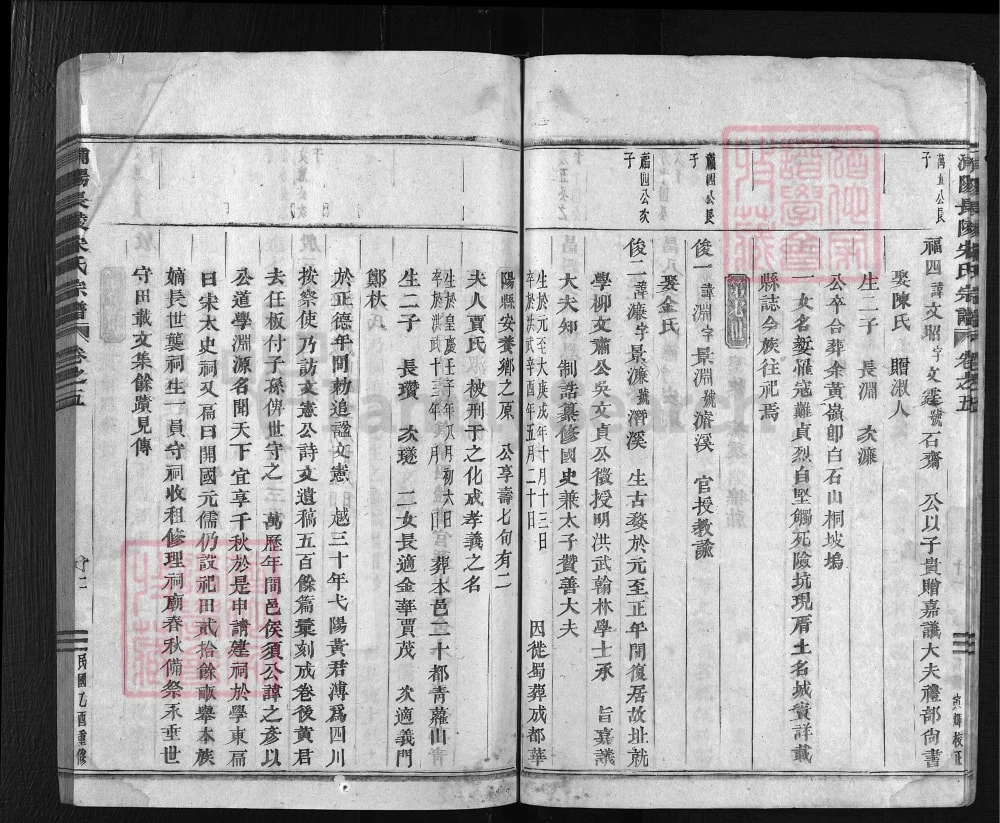 浦陽長陵宋氏宗譜 卷之五
萬九公長子
福四諱文昭字文遠號石齋 公以子貴贈嘉議大夫禮部尙書
娶陳氏 贈淑人
生二子 長淵 次濂
公卒合葬余黃嶺卽白石山桐坡塢
一女名㜏罹寇難貞烈自堅觸死險坑現厝土名城竇詳載
縣誌今族往祀焉
蕭四公長子
俊一諱淵字景淵號濬溪 官授教諭
娶金氏
蕭四公次子
俊二諱濂字景濂號潛溪 生古婺於元至正年間復居故址就
學柳文肅公吳文貞公徵授明洪武翰林學士承 旨嘉議
大夫知 制誥纂修國史兼太子贊善大夫
生於元至大庚戌年十月十三日
卒於洪武辛酉年五月二十日
因徙蜀葬成都華
陽縣安養鄉之原 公享壽七旬有二
夫人賈氏 被刑于之化成孝義之名
生於皇慶壬子年八月初六日
卒於洪武十三年 月 日
葬本邑二十都青蘿山
生二子 長瓚 次璲 二女長適金華賈茂 次適義門
鄭杕
於正德年間勅追謚文憲 越三十年弋陽黃君溥爲四川
按察使乃訪文憲公詩文遺稿五百餘篇彙刻成卷後黃君
去任板付子孫俾世守之 萬歷年間邑侯須公諱之彥以
公道學淵源名聞天下宜享千秋於是申請建祠於學東扁
曰宋太史祠又扁曰開國元儒仍設祀田貳拾餘畝舉本族
嫡長世襲祠生一員守祠收租修理祠廟春秋備祭永垂世
守田載文集餘蹟見傳
浦陽長陵宋氏宗譜 卷之五
十二
民國九酉重修